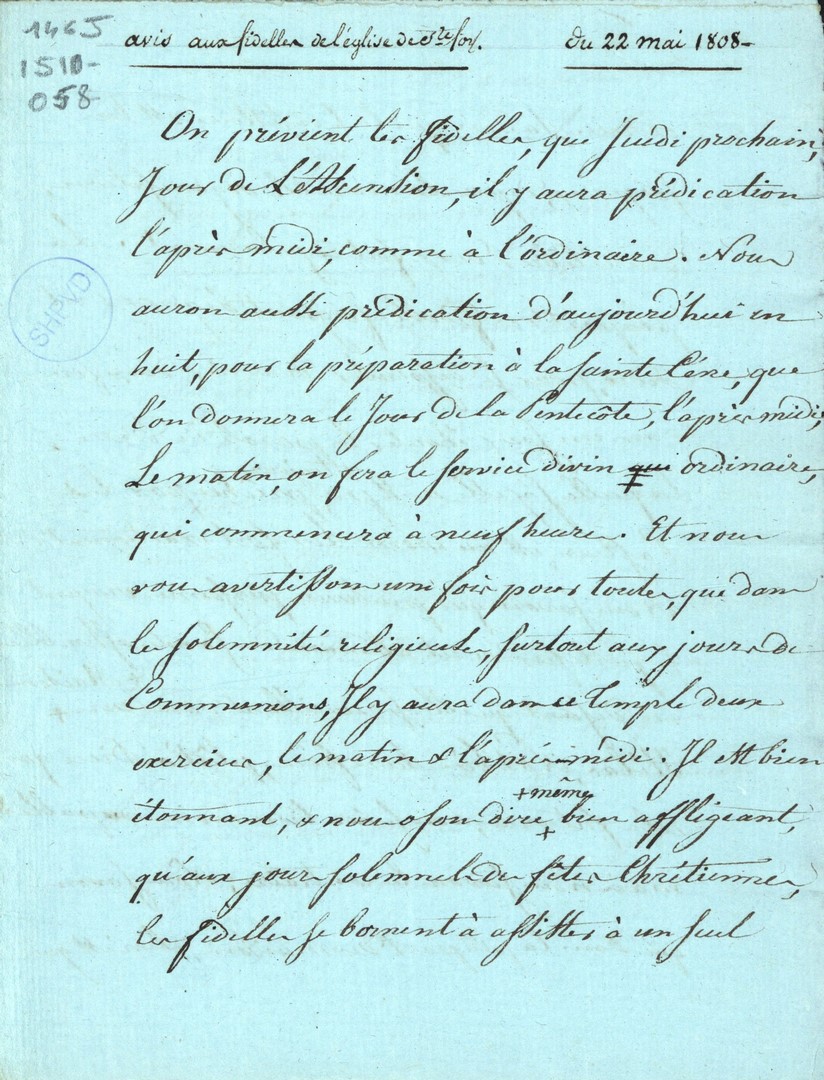 1465
1510-
058
avis aux fidelles de l'église de Ste foy. du 22 mai 1808-
SHPVD
On prévient les fidelles, que Jeudi prochain,
Jour de L'Ascension, il y aura prédication
l'après midi, comme à l'ordinaire. Nous
aurons aussi prédication d'aujourd'hui en
huit, pour la préparation à la Sainte Cène, que
l'on donnera le Jour de la Pentecôte, l'après midi;
Le matin, on fera le service divin qui ordinaire,
qui commencera à neuf heures. Et nous
vous avertissons une fois pour toutes, que dans
les Solemnités religieuses, surtout aux jours de
Communions, Il y aura dans ce Temple deux
exercices, le matin & l'après-midi. Il est bien
+même
étonnant, & nous osons dire + bien affligeant,
qu'aux jours solemnels des fêtes Chrétiennes,
les fidelles se bornent à assister à un seul